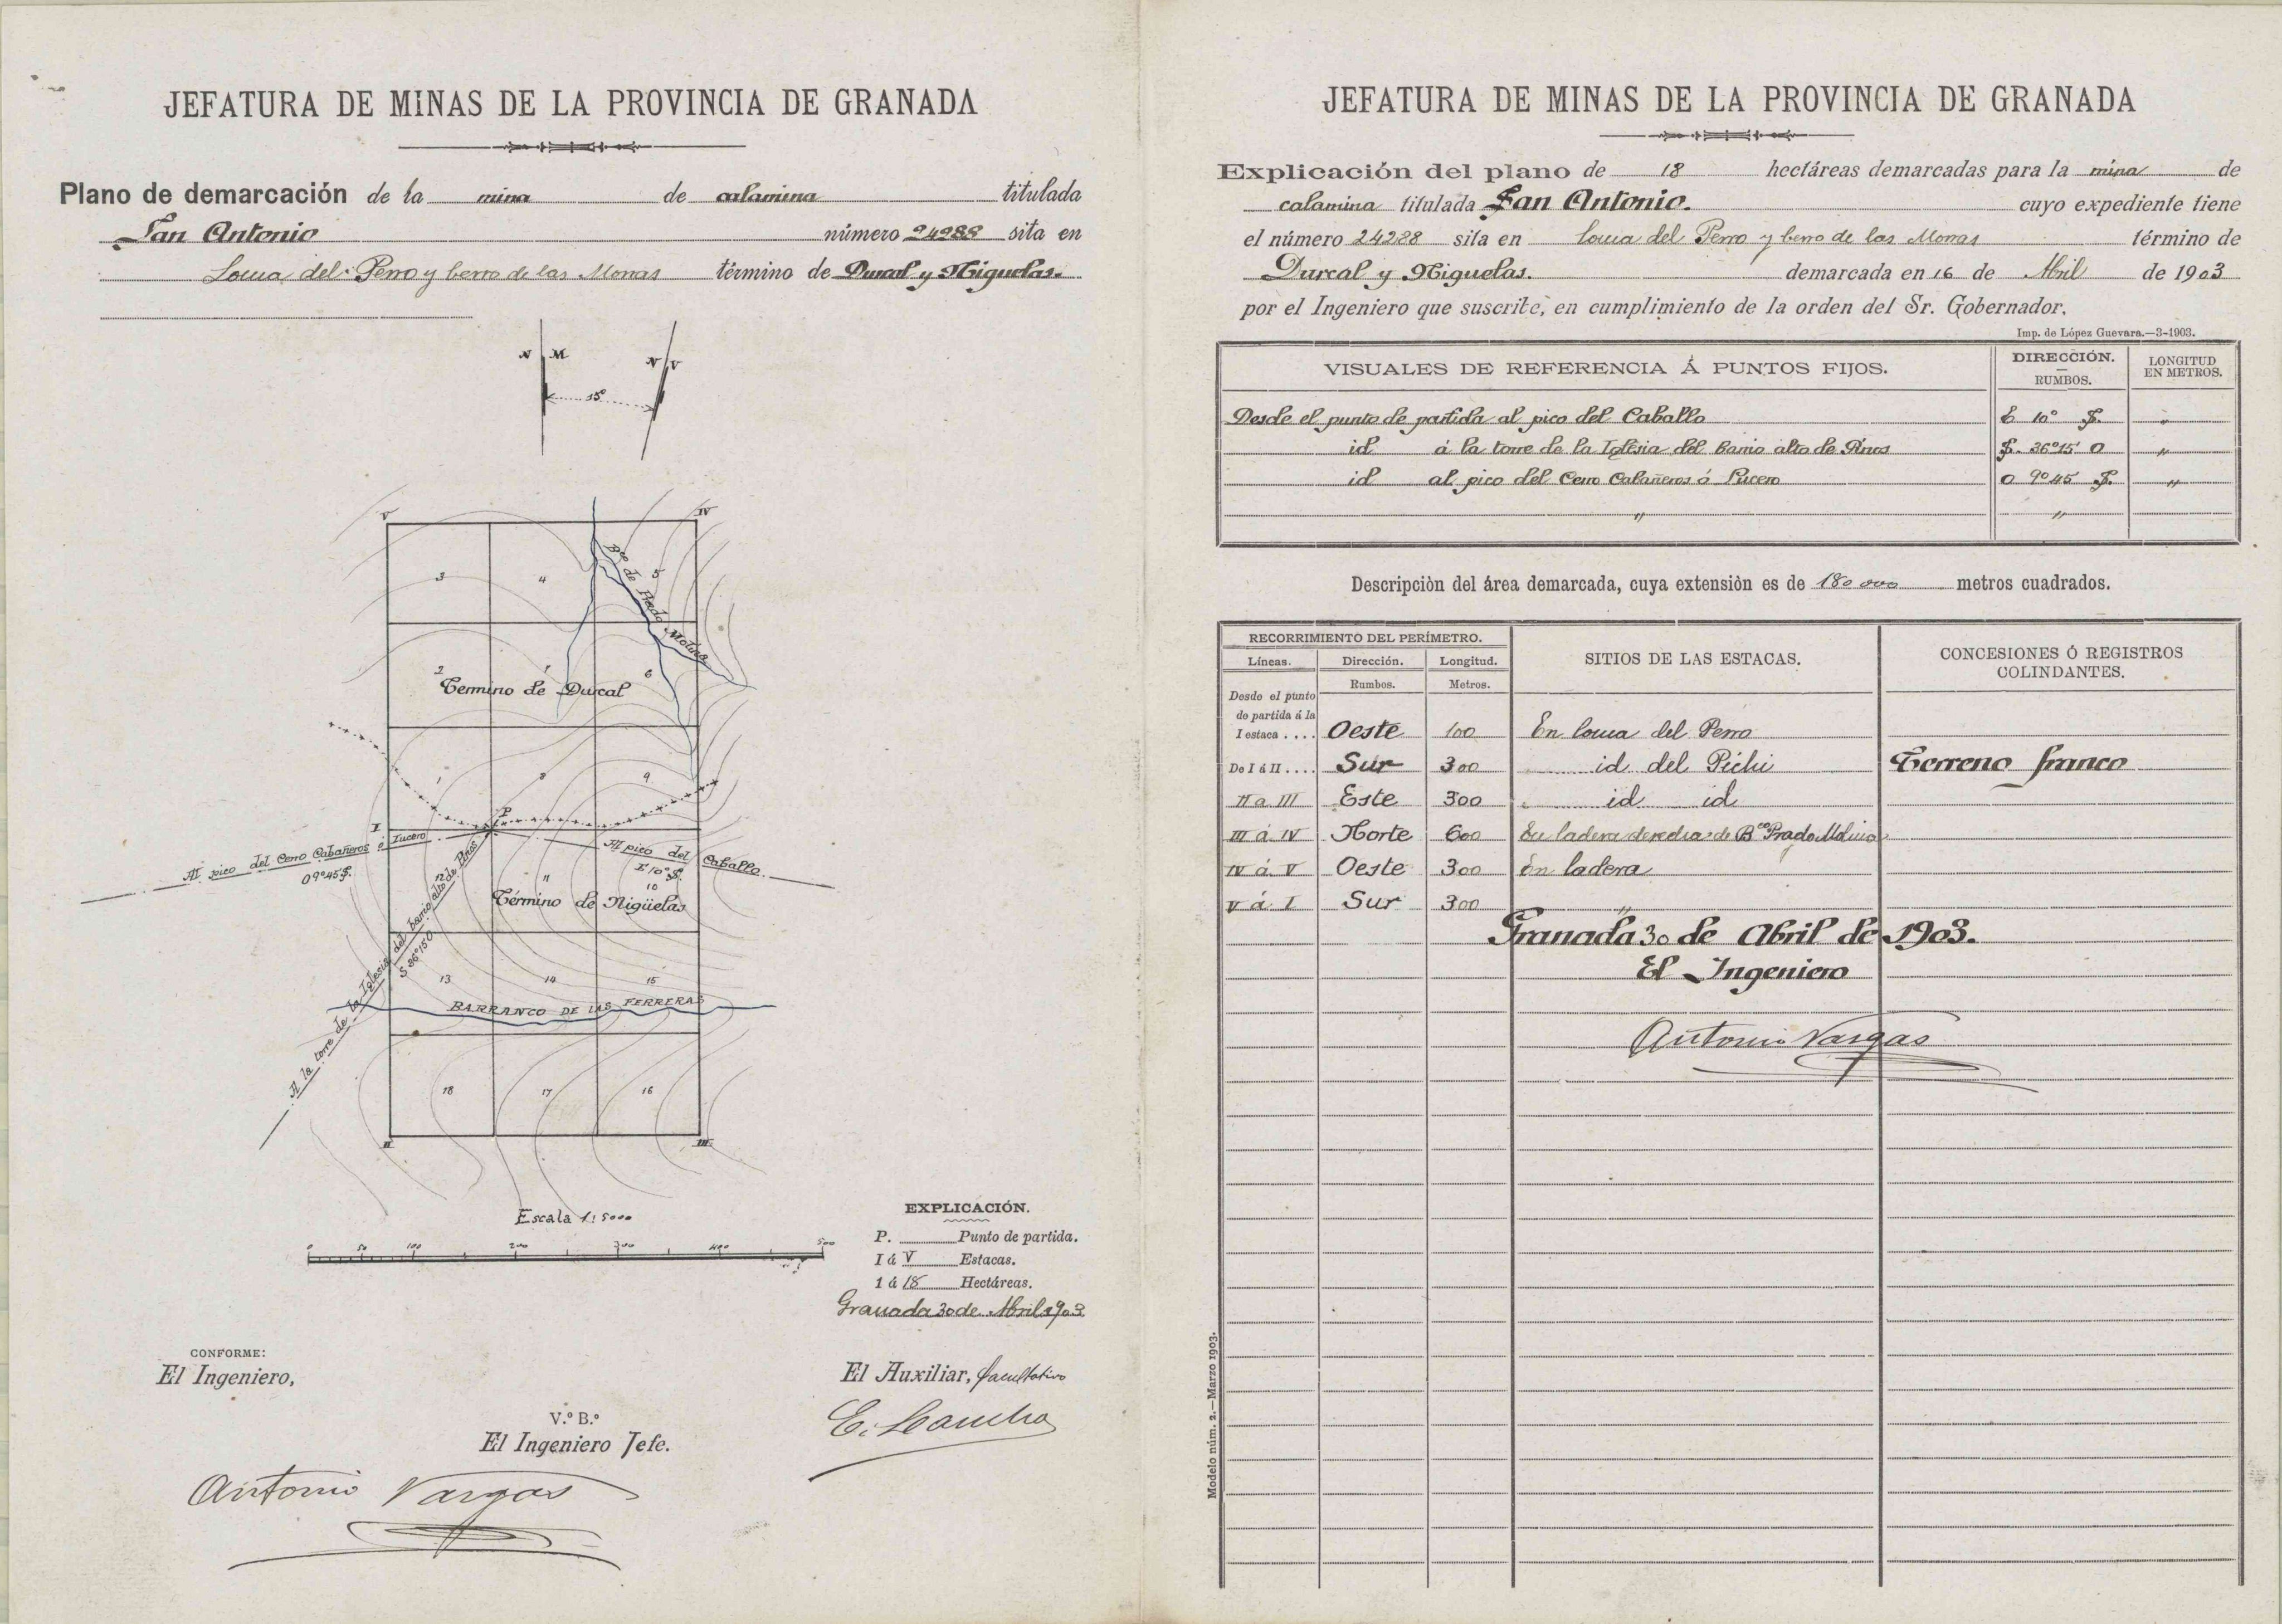 JEFATURA DE MINAS DE LA PROVINCIA DE GRANADA
Plano de demarcación de la mina de calamina titulada
San Antonio número 24288 sita en
Loma del Perro y berro de las Monas término de Durcal y Niguelas.
N M
N V
15°
V
IV
3
4
5
Bco de Prado Molino
2
1
6
Termino de Durcal
1
8
9
P
I
Al pico del Cerro Cabañeros ó Lucero
O 9°45' S.
Al pico del Caballo
E 10° S.
12
11
10
Término de Nigüelas
A la torre de la Iglesia del barrio alto de Pinos
S 36°15' O
13
14
15
BARRANCO DE LAS FERRERAS
18
17
16
II
III
Escala 1:5000
0 50 100 200 300 400 500
EXPLICACIÓN.
P. Punto de partida.
I á V Estacas.
1 á 18 Hectáreas.
Granada 30 de Abril 1903
CONFORME:
El Ingeniero,
El Auxiliar, facultativo
V.° B.°
El Ingeniero Jefe.
Antonio Vargas
JEFATURA DE MINAS DE LA PROVINCIA DE GRANADA
Explicación del plano de 18 hectáreas demarcadas para la mina de
calamina titulada San Antonio. cuyo expediente tiene
el número 24288 sita en Loma del Perro y berro de las Monas término de
Durcal y Niguelas. demarcada en 16 de Abril de 1903
por el Ingeniero que suscribe, en cumplimiento de la orden del Sr. Gobernador.
Imp. de López Guevara.—3-1903.
VISUALES DE REFERENCIA Á PUNTOS FIJOS. DIRECCIÓN. — RUMBOS. LONGITUD EN METROS.
Desde el punto de partida al pico del Caballo E 10° S. "
id á la torre de la Iglesia del barrio alto de Pinos S. 36°15' O "
id al pico del Cerro Cabañeros ó Lucero O 9°45 S. "
" "
Descripción del área demarcada, cuya extensión es de 180 000 metros cuadrados.
RECORRIMIENTO DEL PERÍMETRO. SITIOS DE LAS ESTACAS. CONCESIONES Ó REGISTROS COLINDANTES.
Líneas. Dirección. Longitud.
Rumbos. Metros.
Desde el punto de partida á la I estaca.... Oeste 100 En loma del Perro
De I á II.... Sur 300 id del Pichi Terreno franco
II a III Este 300 id id
III á IV Norte 600 En ladera derecha de Bco Prado Molino
IV á V Oeste 300 En ladera
V á I Sur 300 "
Granada 30 de Abril de 1903.
El Ingeniero
Antonio Vargas
Modelo núm. 2.—Marzo 1903.